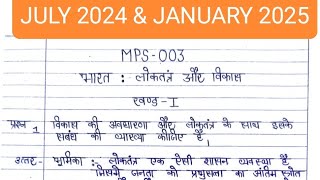 JULY 2024 & JANUARY 2025
MPS-003
भारत : लोकतंत्र और विकास
खण्ड-I
प्रश्न 1 विकास की अवधारणा और लोकतंत्र के साथ इसके
संबंध की व्याख्या कीजिए है,
उत्तर- भूमिका : लोकतंत्र एक ऐसी शासन व्यवस्था है
जिसमें जनता की प्रभुसत्ता का अंतिम स्त्रोत